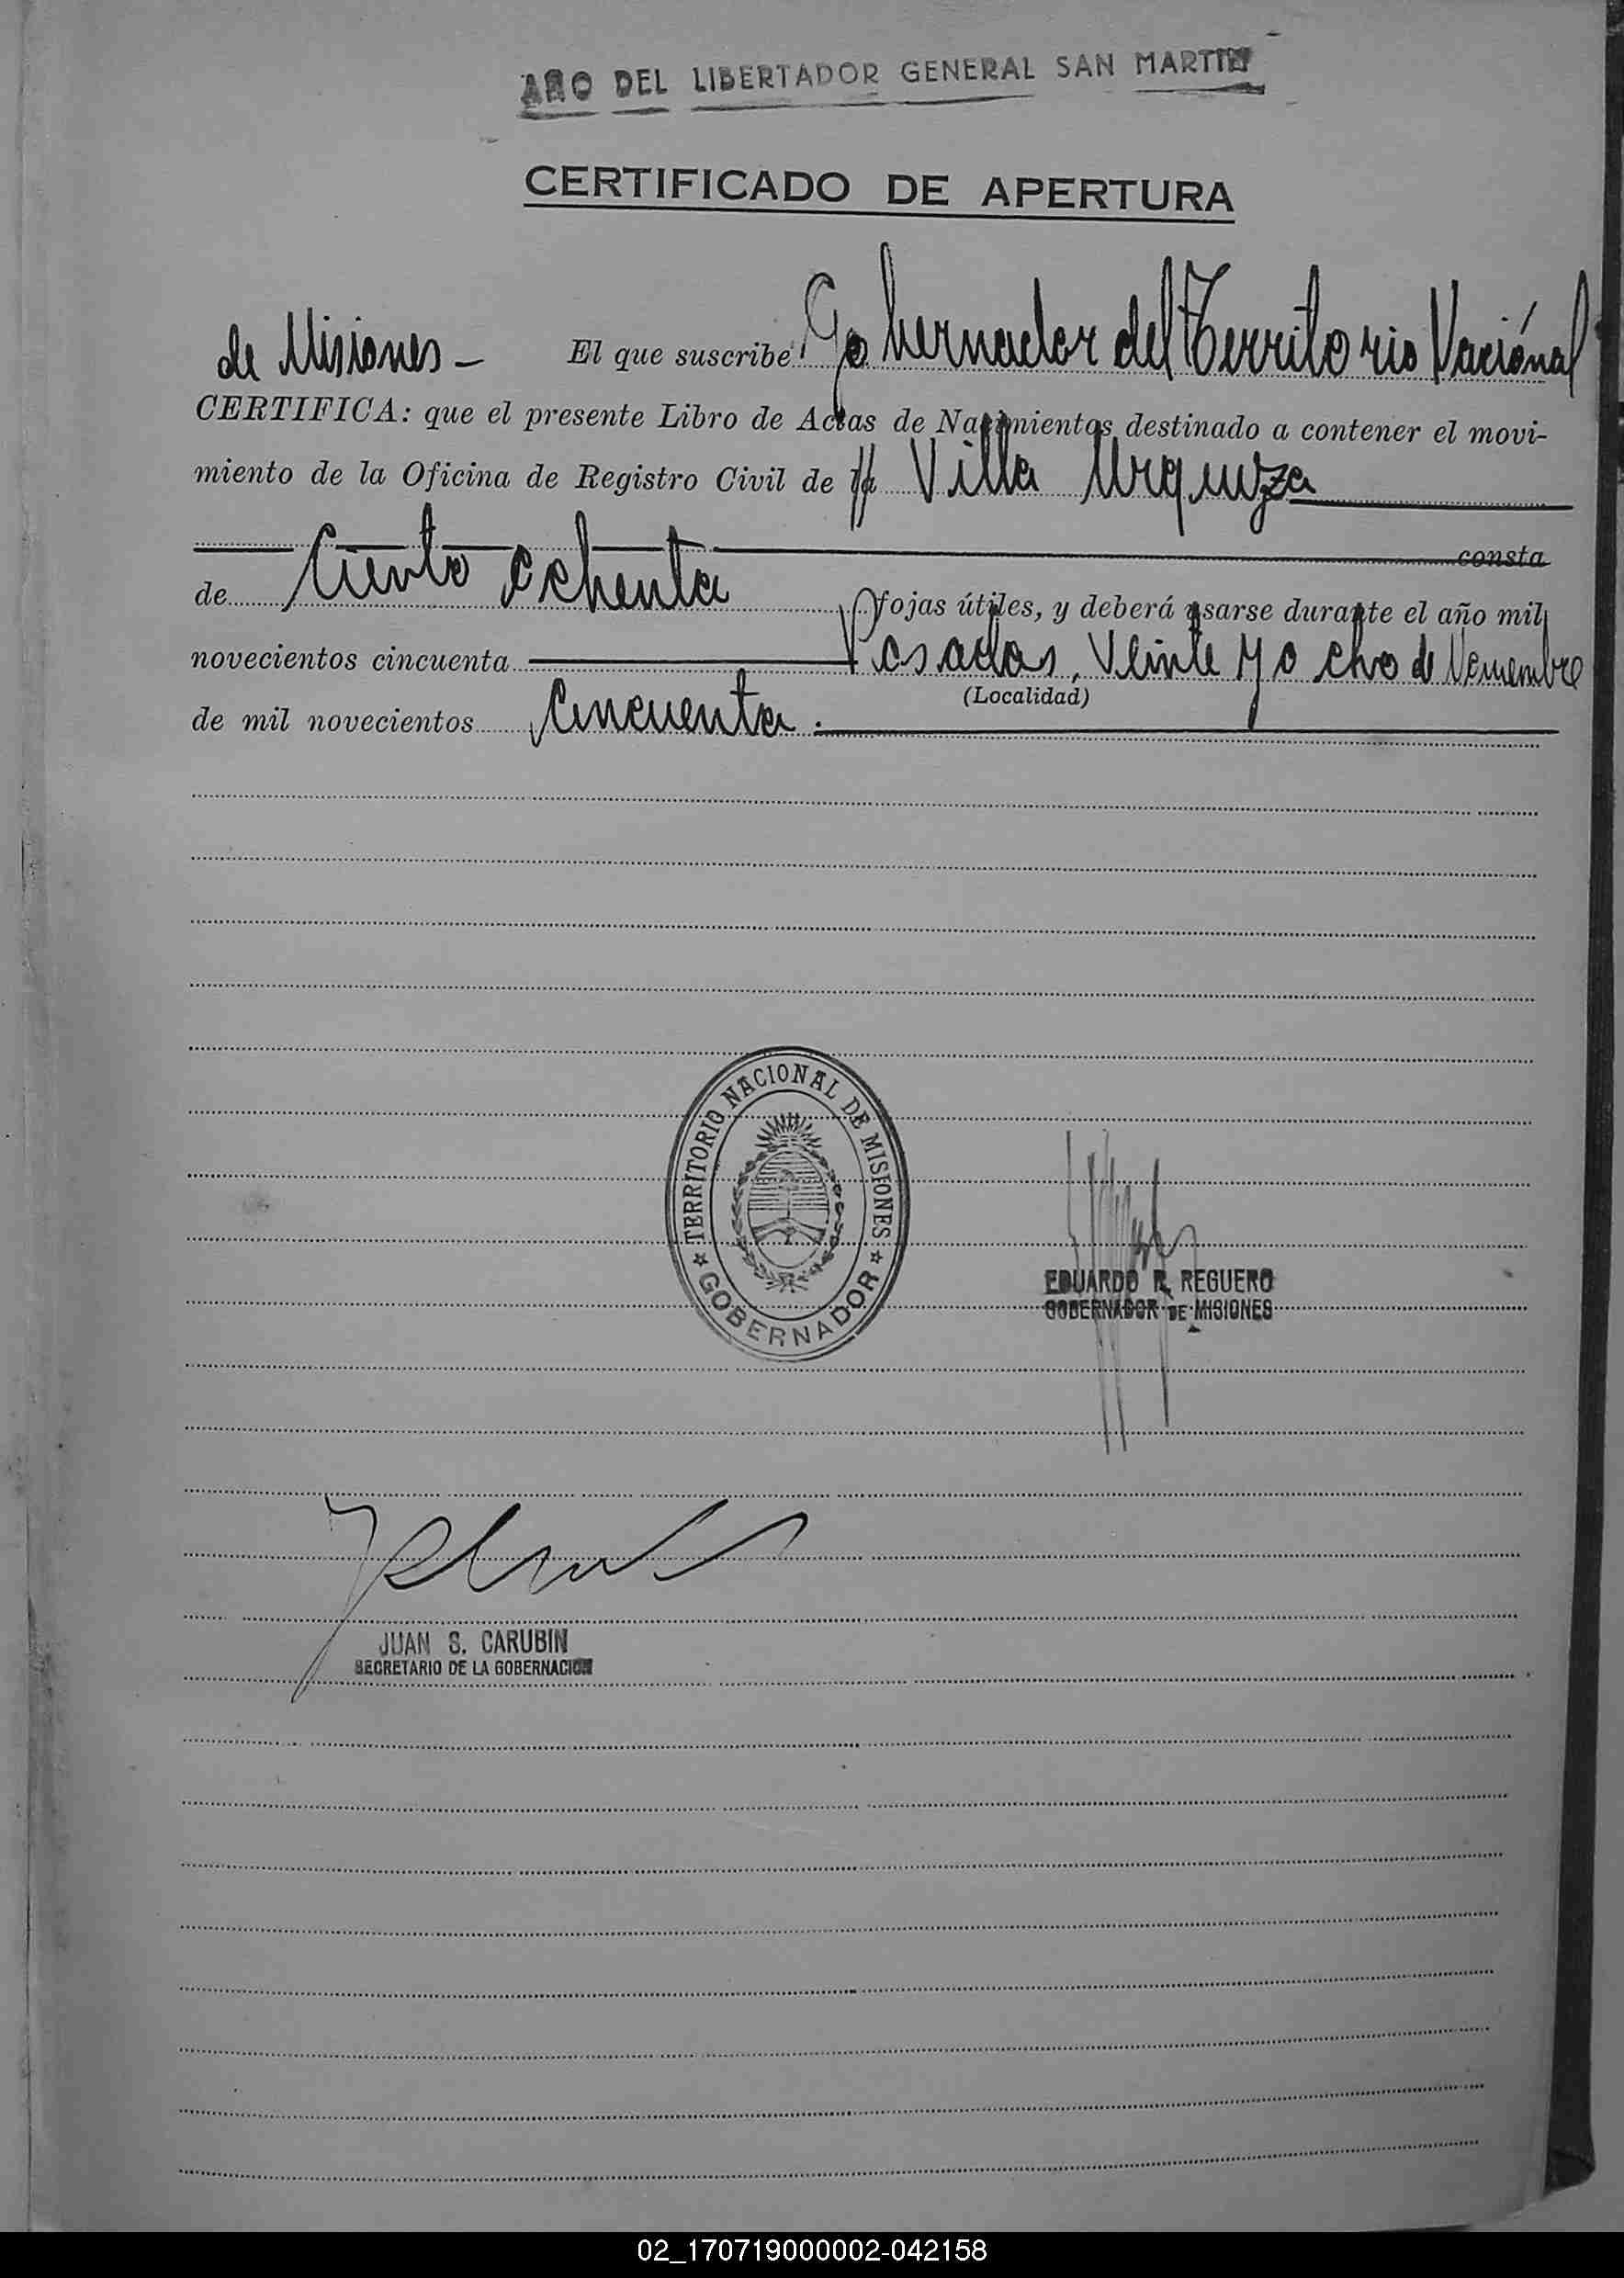 AÑO DEL LIBERTADOR GENERAL SAN MARTIN
CERTIFICADO DE APERTURA
El que suscribe Gobernador del Territorio Nacional
de Misiones -
CERTIFICA: que el presente Libro de Actas de Nacimientos destinado a contener el movi-
miento de la Oficina de Registro Civil de la Villa Urquiza
consta
de Ciento ochenta fojas útiles, y deberá usarse durante el año mil
novecientos cincuenta Posadas, Veinte y ocho de Noviembre
(Localidad)
de mil novecientos Cincuenta.
TERRITORIO NACIONAL DE MISIONES
GOBERNADOR
EDUARDO R. REGUERO
GOBERNADOR DE MISIONES
JUAN S. CARUBIN
SECRETARIO DE LA GOBERNACION
02_170719000002-042158